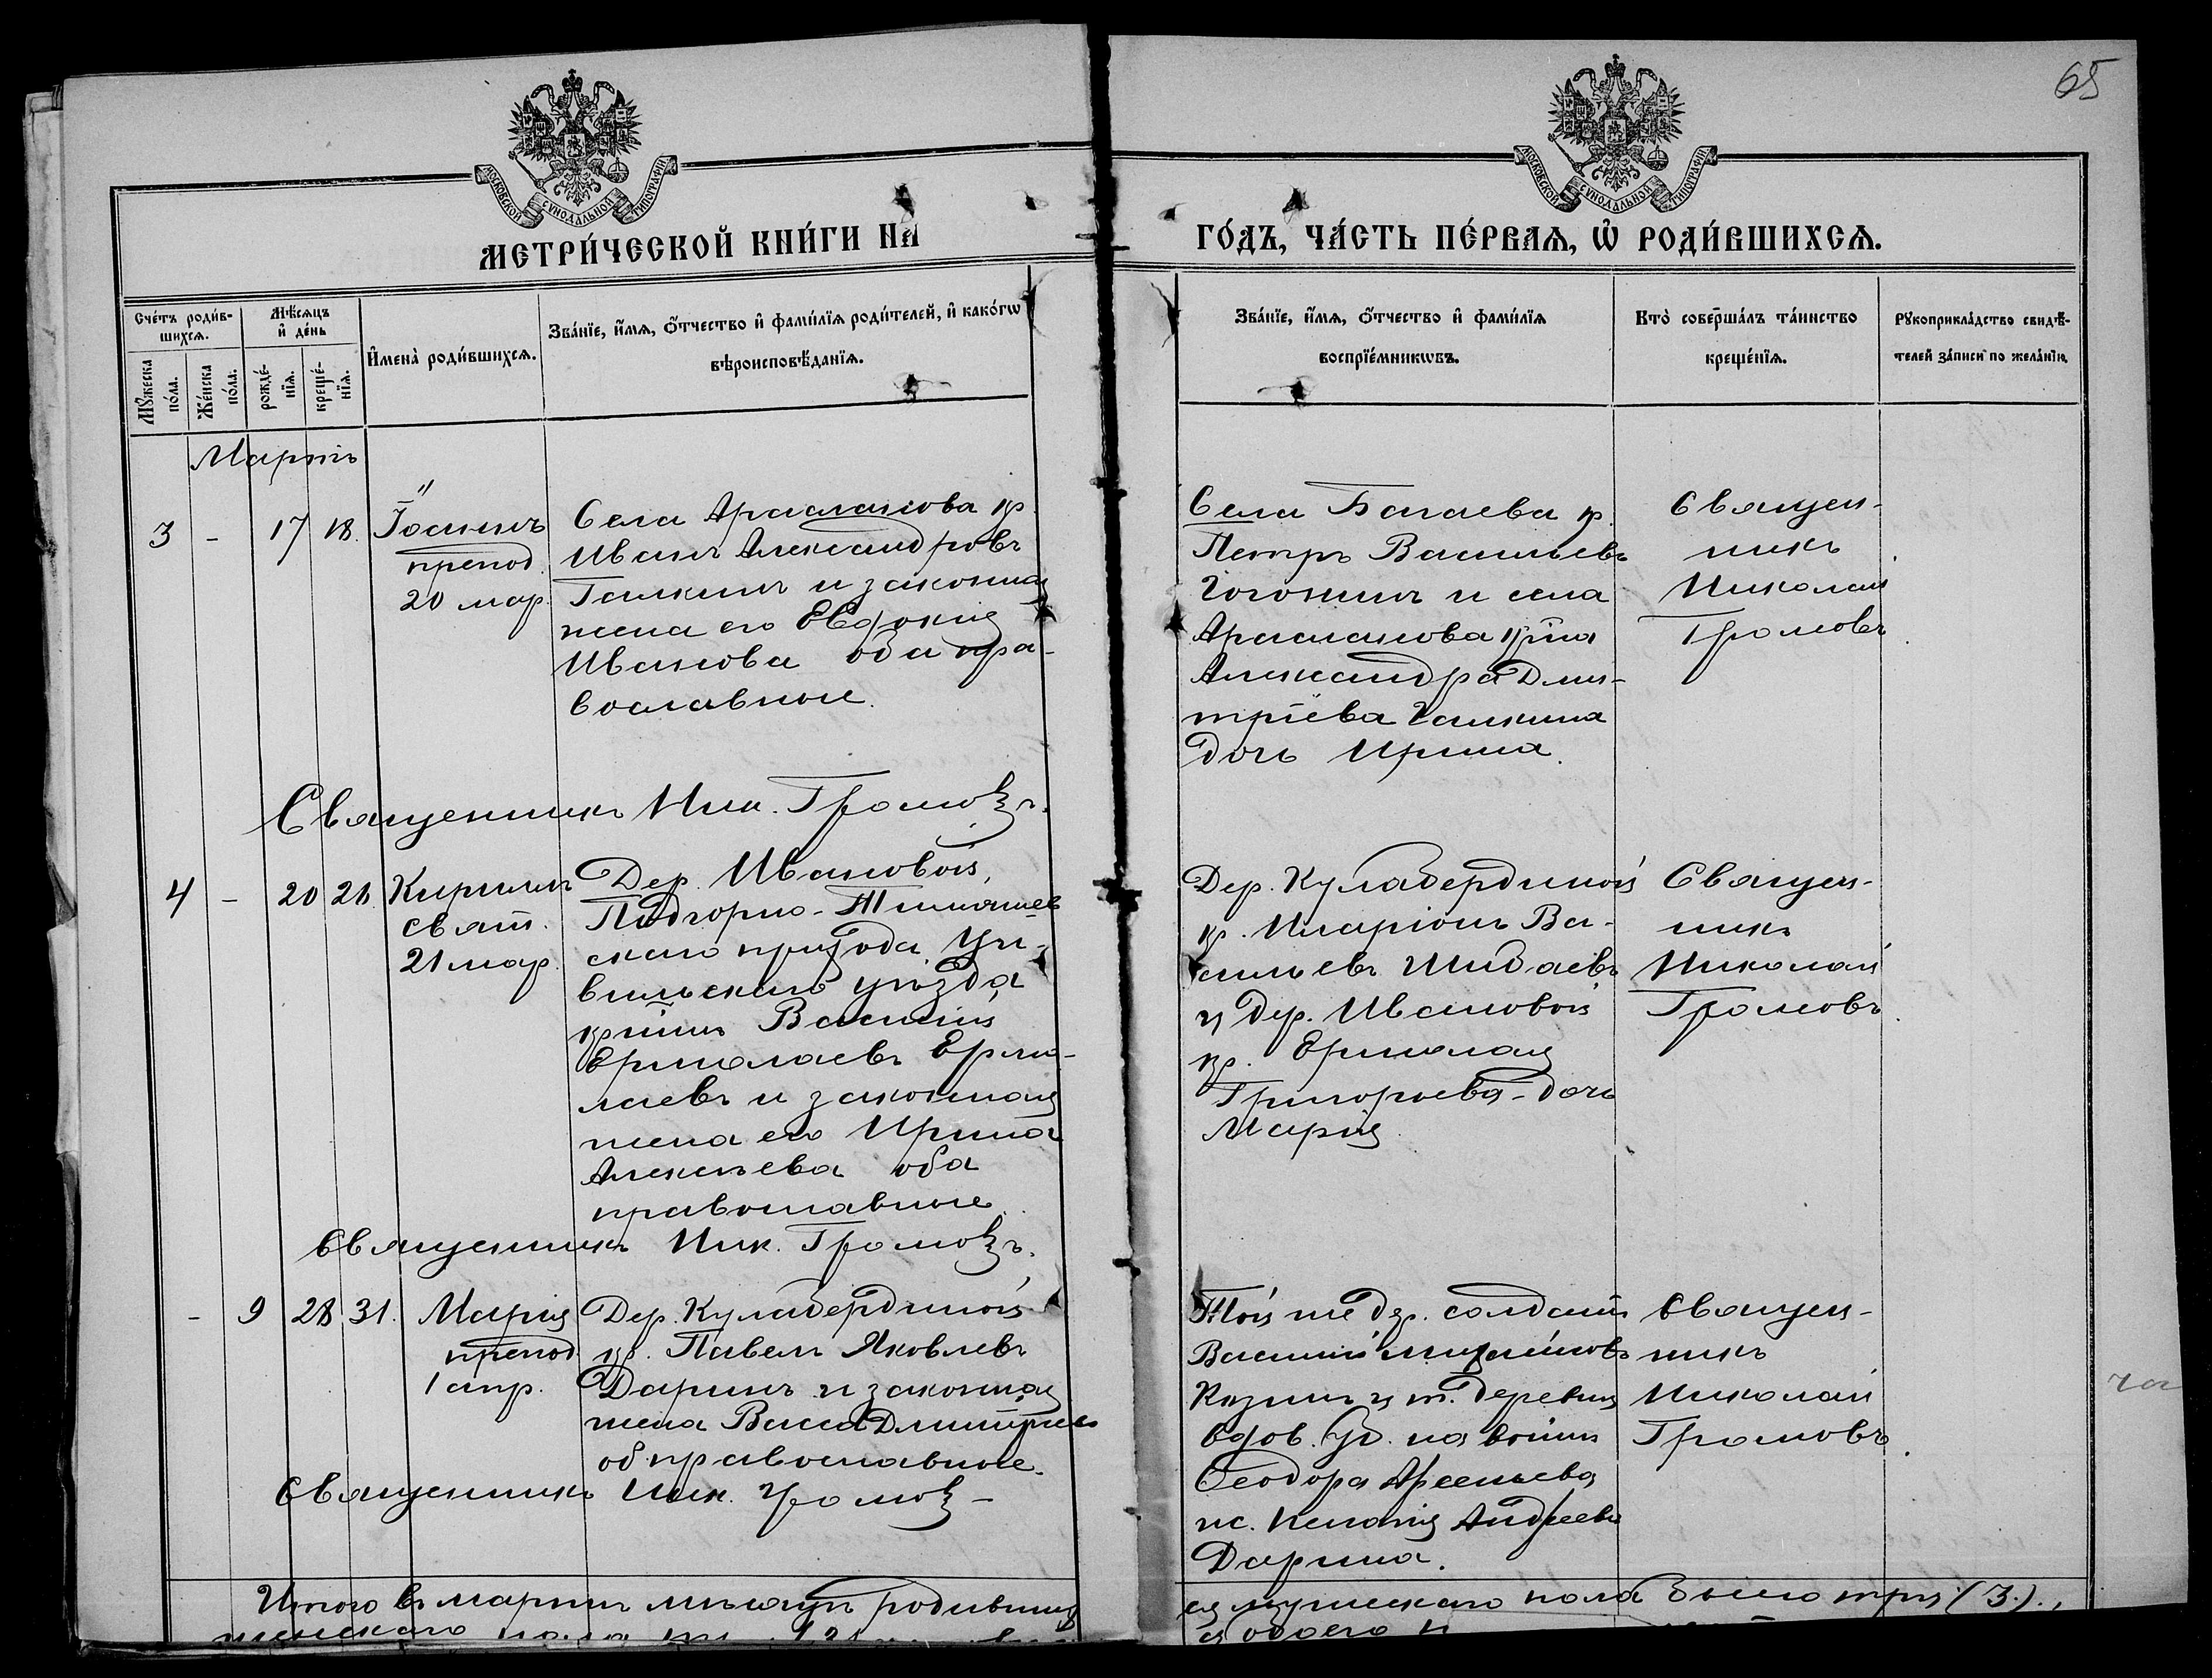 65
МОСКОВСКОЙ СѴНОДАЛЬНОЙ ТИПОГРАФІИ
МОСКОВСКОЙ СѴНОДАЛЬНОЙ ТИПОГРАФІИ
МЕТРИ́ЧЕСКОЙ КНИ́ГИ НА
ГО́ДЪ, ЧА́СТЬ ПЕ́РВАЯ, Ѡ РОДИ́ВШИХСЯ.
Сче́тъ роди́в-
шихся.
Мꙋ́жеска
по́ла.
Же́нска
по́ла.
Мѣ́сяцъ
и де́нь
рожде́-
нїя.
креще́-
нїя.
Имена̀ роди́вшихся.
Зва́нїе, и́мя, о́тчество и фами́лїя роди́телей, и како́гѡ
вѣроисповѣ́данїя.
Зва́нїе, и́мя, о́тчество и фами́лїя
воспрїе́мникѡвъ.
Кто̀ соверша́лъ та́инство
креще́нїя.
Рꙋкоприкла́дство свидѣ́-
телей за́писи по жела́нїю.
Мартъ
3 - 17 18.
Іоаннъ
препод.
20 мар.
Села Арасланова кр.
Иванъ Александровъ
Галкинъ и законная
жена его Евдокия
Иванова оба пра-
вославные.
Села Багаева кр.
Петръ Васильевъ
Гогонинъ и села
Арасланова кр̃на
Александра Дми-
тріева Галкина
дочь Ирина.
Священ-
никъ
Николай
Громовъ.
Священникъ Ник. Громовъ.
4 - 20 21.
Кириллъ
свят.
21 мар.
Дер. Ивановой,
Подгорно-Тимяшев
скаго прихода, Ци-
вильскаго уѣзда
кр̃нинъ Василій
Ермолаевъ Ермо-
лаевъ и законная
жена его Ирина
Алексѣева оба
православные.
Дер. Кулабердиной
кр. Иларіонъ Ва-
сильевъ Шибаевъ
и дер. Ивановой
кр. Ермолая
Григорьева - дочь
Марія.
Священ-
никъ
Николай
Громовъ.
Священникъ Ник. Громовъ.
- 9 28 31.
Марія
препод.
1 апр.
Дер. Кулабердиной
кр. Павелъ Яковлевъ
Даринъ и законная
жена Васса Дмитріева
об. православные.
Той же др. солдатъ
Василій
Козинъ и т. деревни
вдов.
Ѳеодора Арсеньева
Андреева
Дарина.
Священ-
никъ
Николай
Громовъ.
Священникъ Ник. Громовъ
Итого въ мартѣ мѣсяцѣ родивших
ся мужескаго пола было три (3).,
женскаго пола
обоего